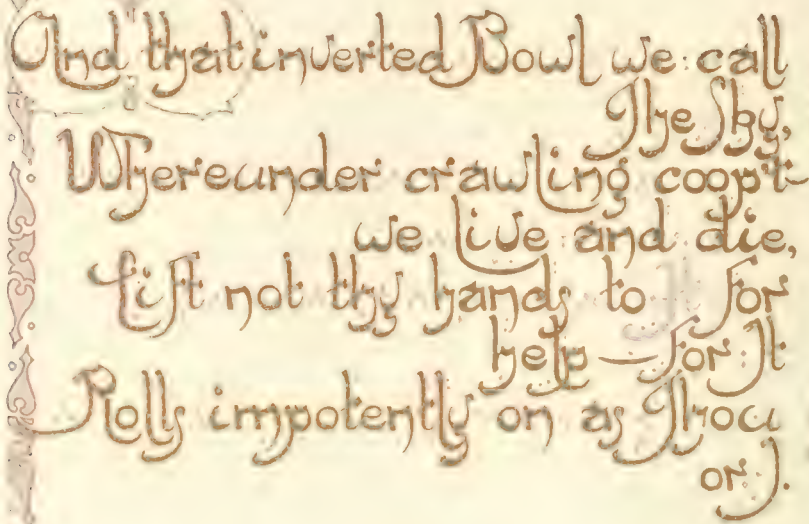 And that inverted Bowl we call
The Sky,
Whereunder crawling coop't
we live and die,
Lift not thy hands to It for
help — for It
Rolls impotently on as Thou
or I.